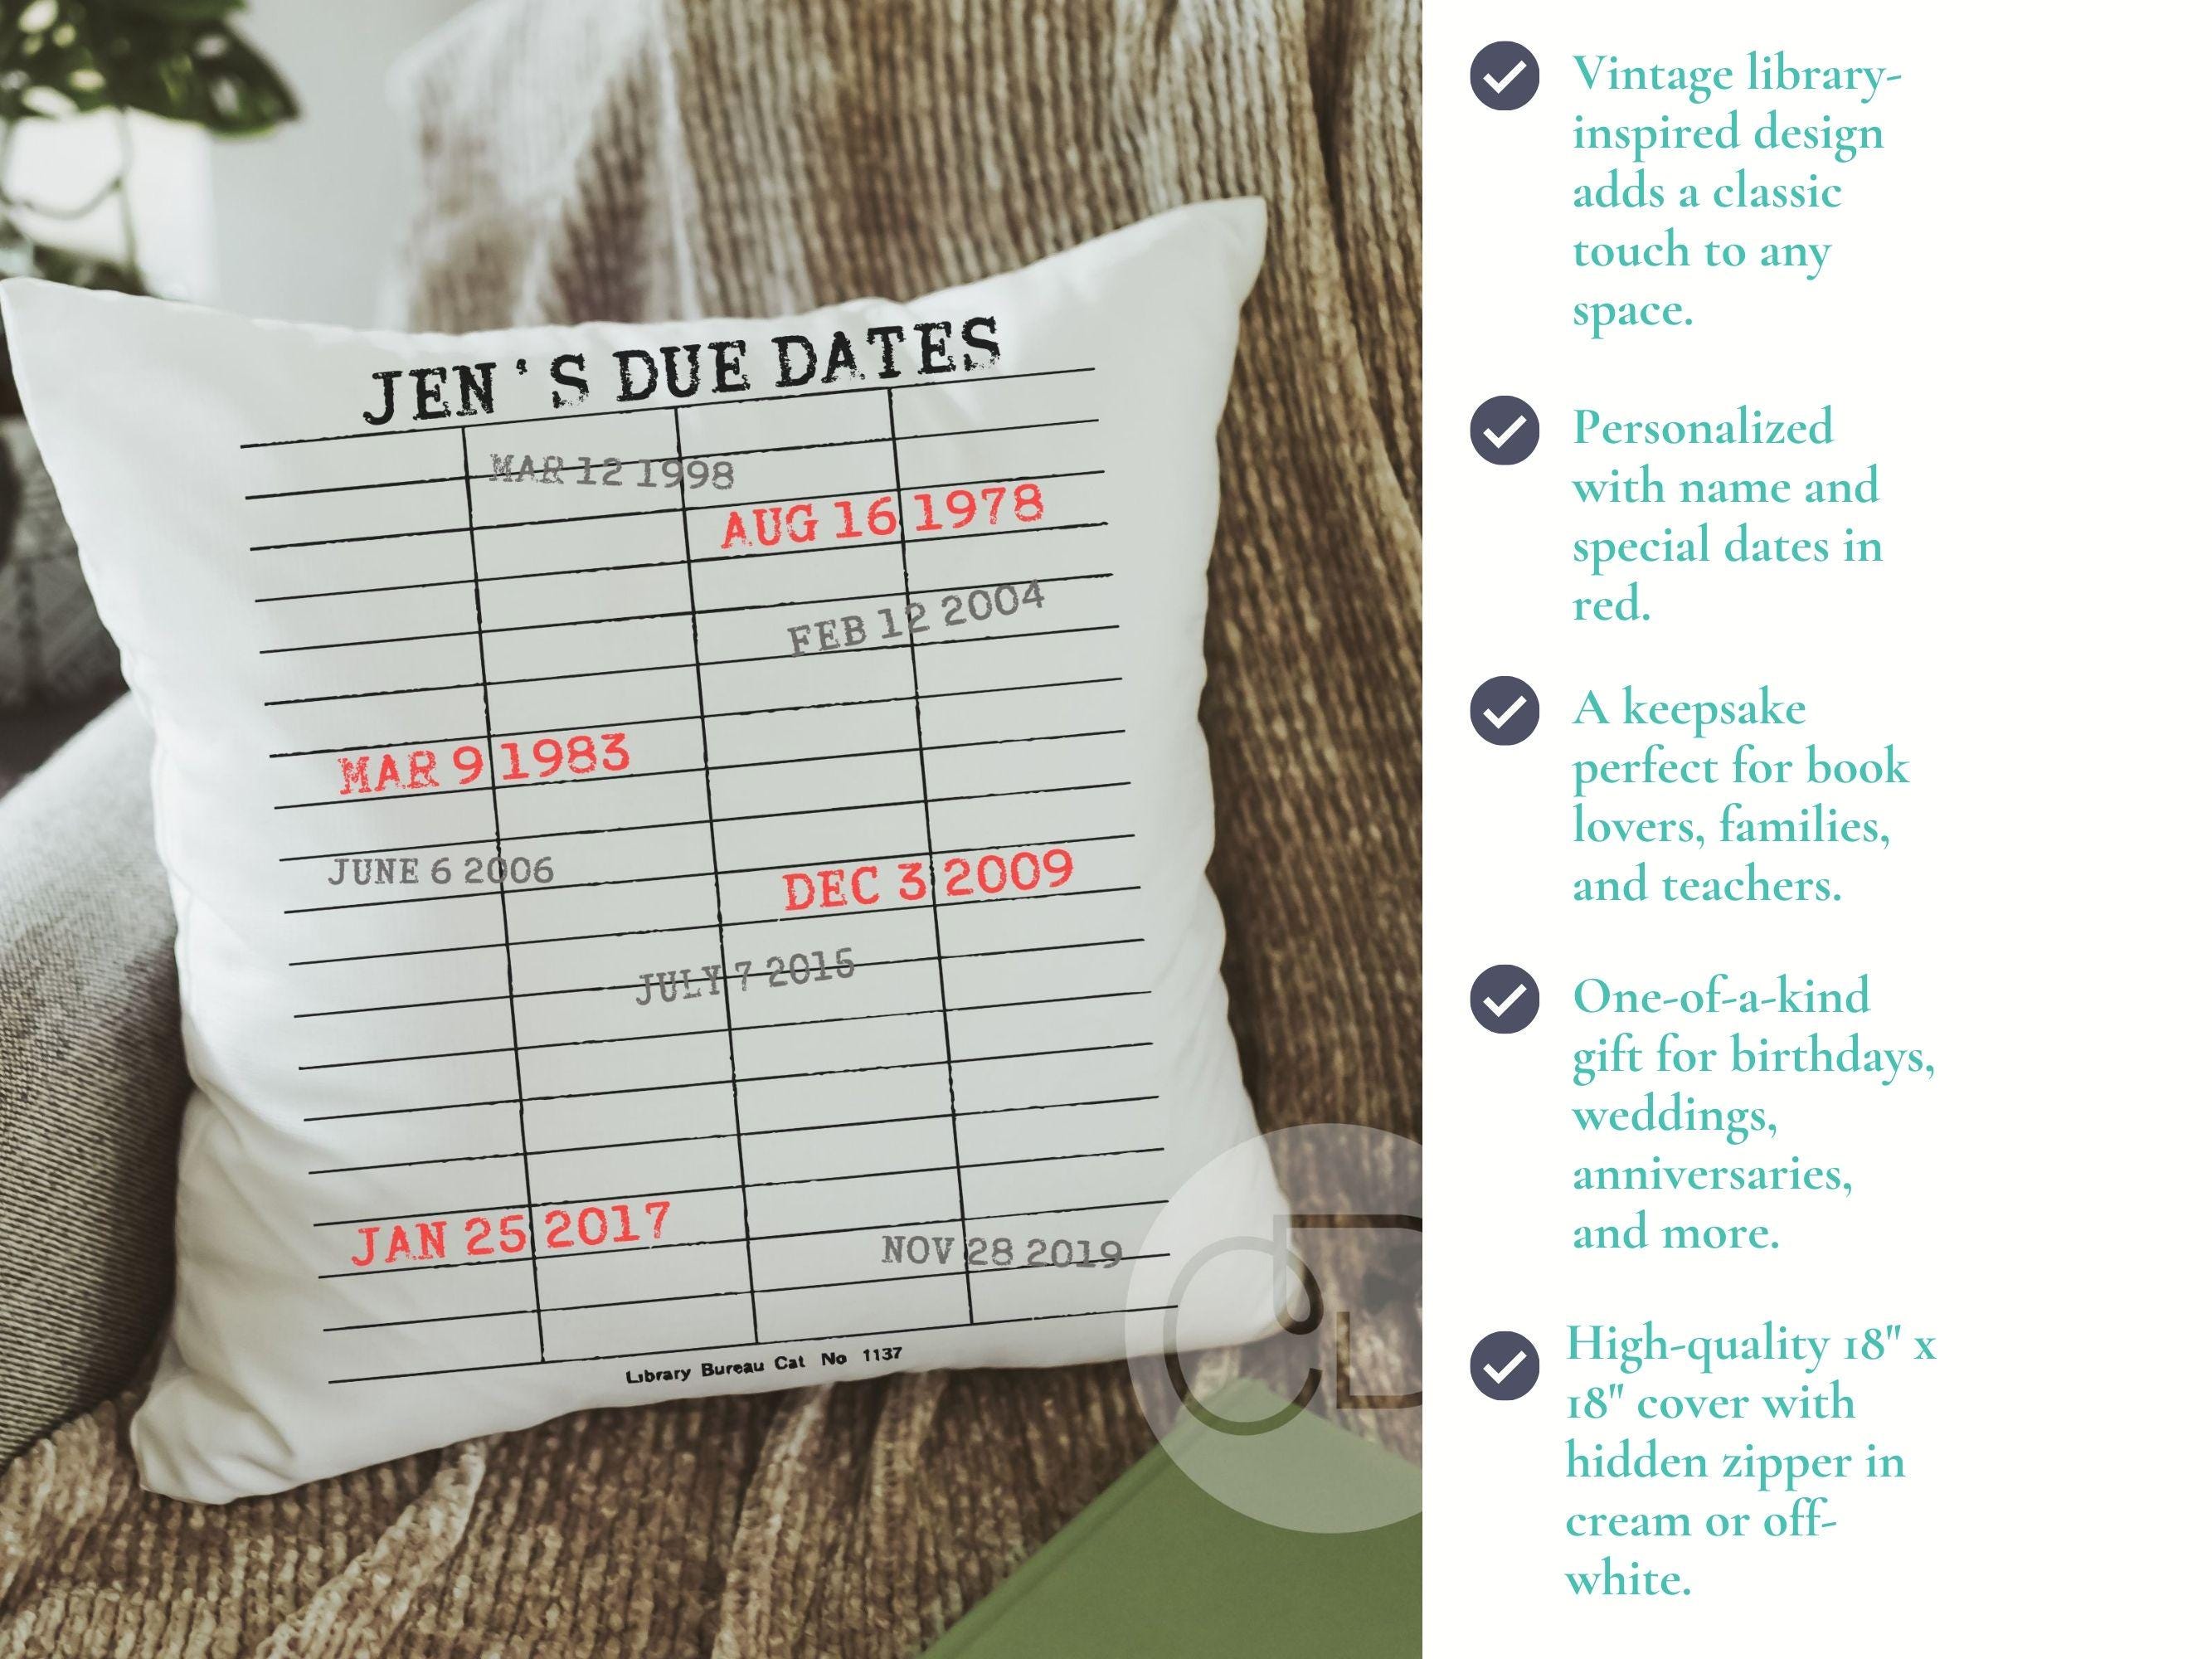 JEN'S DUE DATES
MAR 12 1998
AUG 16 1978
FEB 12 2004
MAR 9 1983
JUNE 6 2006
DEC 3 2009
JULY 7 2015
JAN 25 2017
NOV 28 2019
Library Bureau Cat No 1137
CD
Vintage library-
inspired design
adds a classic
touch to any
space.
Personalized
with name and
special dates in
red.
A keepsake
perfect for book
lovers, families,
and teachers.
One-of-a-kind
gift for birthdays,
weddings,
anniversaries,
and more.
High-quality 18" x
18" cover with
hidden zipper in
cream or off-
white.